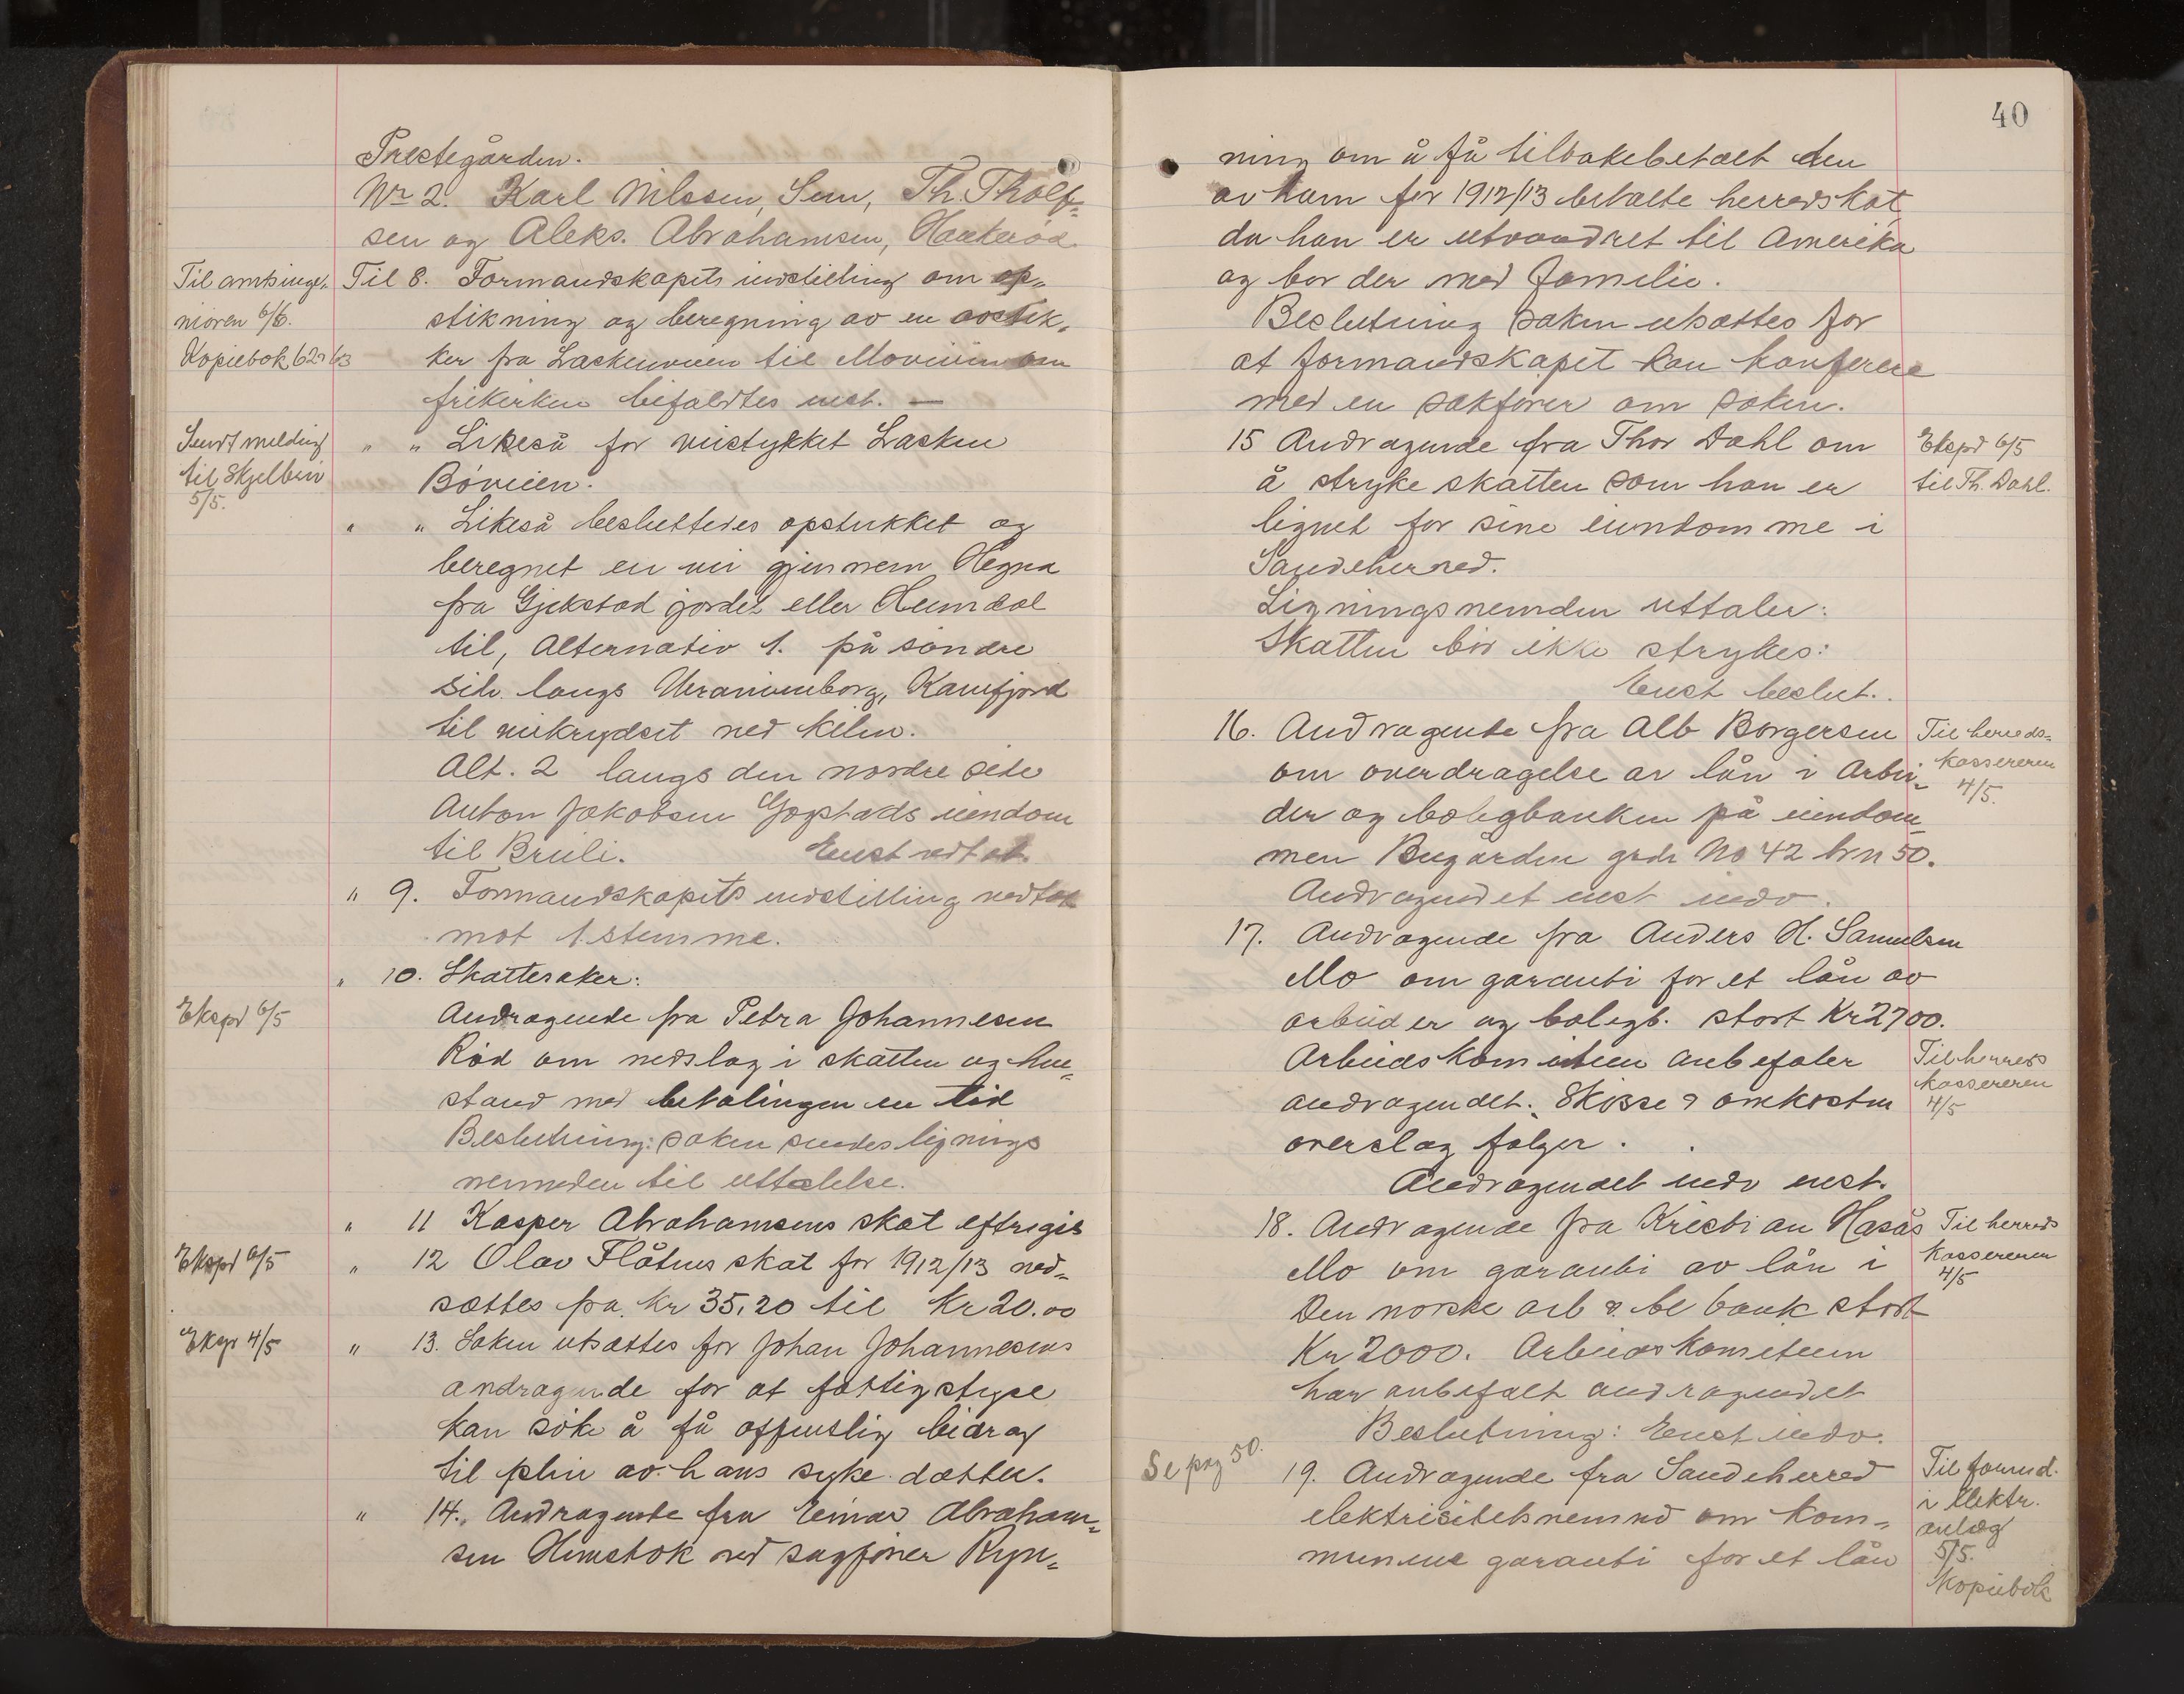 Prestegården.
Nr 2. Karl Nilssen, Sem, Th. Tholf-
sen og Aleks. Abrahamsen, Haukerød.
Til amtsinge-
niøren 6/6.
Kopiebok 62 & 63
Til 8. Formandskapets indstilling om op-
stikning og beregning av en avstik-
ker fra Laskenveien til Moveien om
frikirken bifaldtes enst. —
Sendt melding
til Skjelbrei
5/5.
" " Likeså for veistykket Lasken
Bøveien.
" " Likeså besluttedes opstukket og
beregnet en vei gjennem Hegna
fra Gjekstad jordet eller Heimdal
til, Alternativ 1. på søndre
side langs Uranienborg, Kamfjord
til veikrydset ved kilen.
Alt. 2 langs den nordre side
Anton Jakobsen Gogstads eiendom
til Breili. Enst vedtat.
" 9. Formandskapets indstilling vedtat
mot 1 stemme.
" 10. Skattesaker:
Ekspd 6/5
Andragende fra Petra Johannesen
Rød om nedslag i skatten og hen-
stand med betalingen en tid
Beslutning: saken sendes lignings
nemnden til uttalelse.
" 11 Kasper Abrahamsens skat eftergis
Ekspd 6/5
" 12 Olav Flåtens skat for 1912/13 ned-
sættes fra Kr 35,20 til Kr 20.00
Eksp 4/5
" 13. Saken utsættes for Johan Johannesens
andragende for at fattigstyre
kan søke å få offenslig bidrag
til pleie av hans syke datter.
" 14. Andragende fra Einar Abraham-
sen Himstok ved sagfører Ryn-
40
ning om å få tilbakebetalt den
av ham for 1912/13 betalte herredskat
da han er utvandret til Amerika
og bor der med familie.
Beslutning saken utsættes for
at formandskapet kan konferere
med en sakfører om saken.
15 Andragende fra Thor Dahl om
å stryke skatten som han er
lignet for sine eiendomme i
Sandeherred.
Ekspd 6/5
til Th. Dahl.
Ligningsnemnden uttaler:
Skatten bør ikke strykes:
Enst beslut.
16. Andragende fra Alb Borgersen
om overdragelse av lån i Arbei-
der og boligbanken på eiendom-
men Bugården grdr No 42 brn 50.
Til herreds-
kassereren
4/5.
Andragendet enst indv.
17. Andragende fra Anders H. Samuelsen
Mo om garanti for et lån av
arbeider og boligb. stort Kr 2700.
Arbeidskomiteen anbefaler
andragendet. Skisse & omkostn
overslag følger.
Til herreds
kassereren
4/5
Andragendet indv enst.
18. Andragende fra Kristian Hasås
Mo om garanti av lån i
Den norske arb & bo bank stort
Kr 2000. Arbeidskomiteen
har anbefalt andragendet
Til herreds
kassereren
4/5
Beslutning: Enst indv.
Se pag 50.
19. Andragende fra Sandeherred
elektrisitetsnemnd om kom-
munens garanti for et lån
Til formd.
i elektr.
anlæg
5/5.
Kopiebok